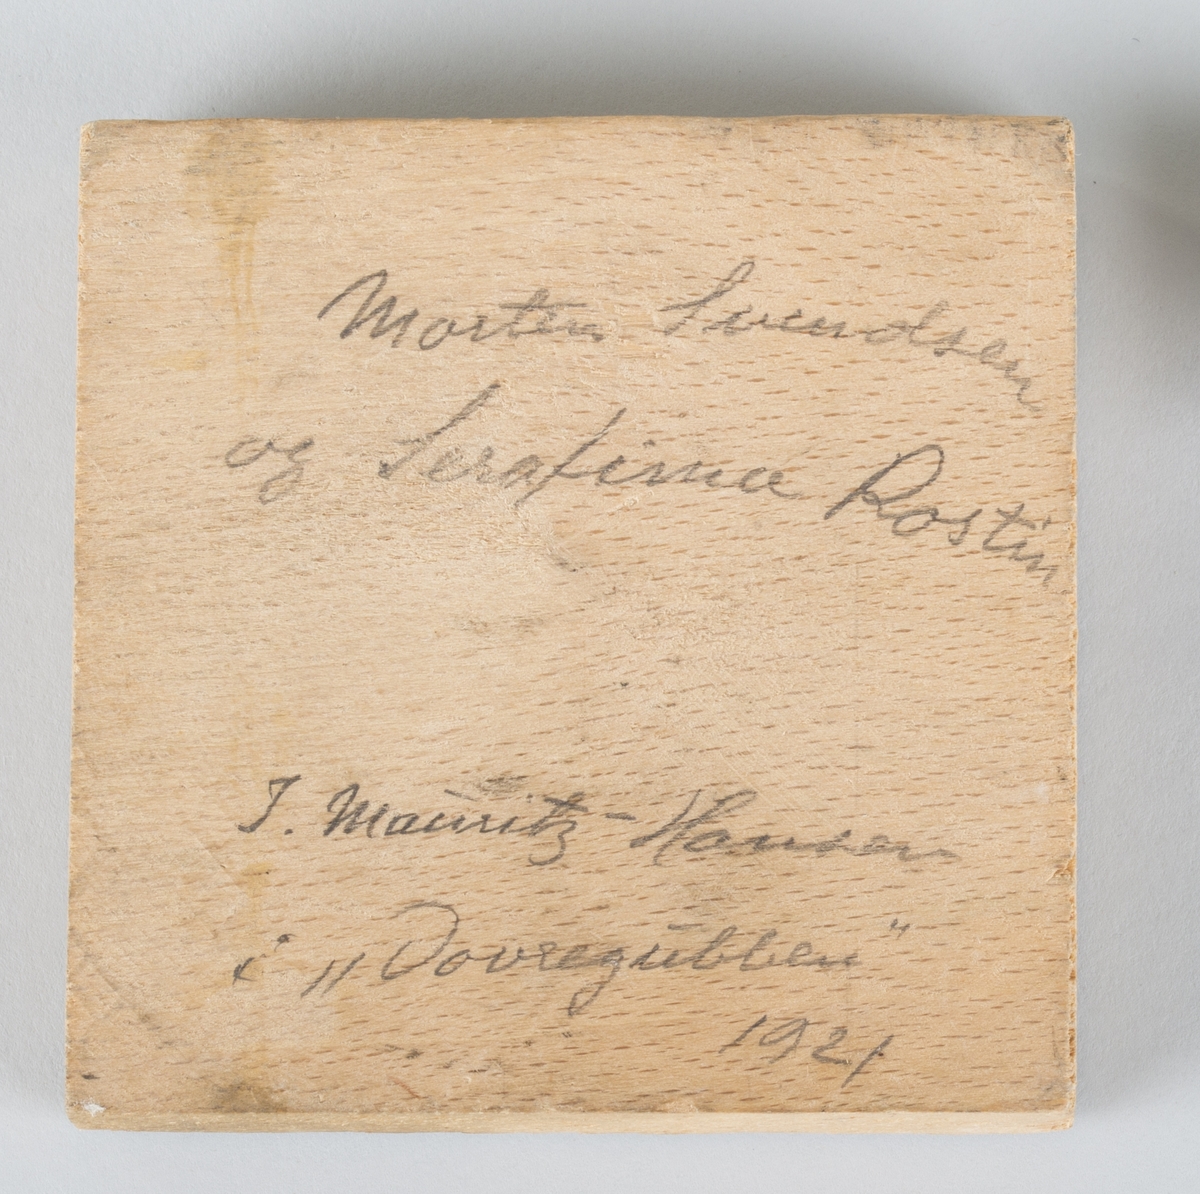 Morten Svendsen
og Serafima Rostin
J. Mauritz-Hansen
i „Dovregubben"
1921